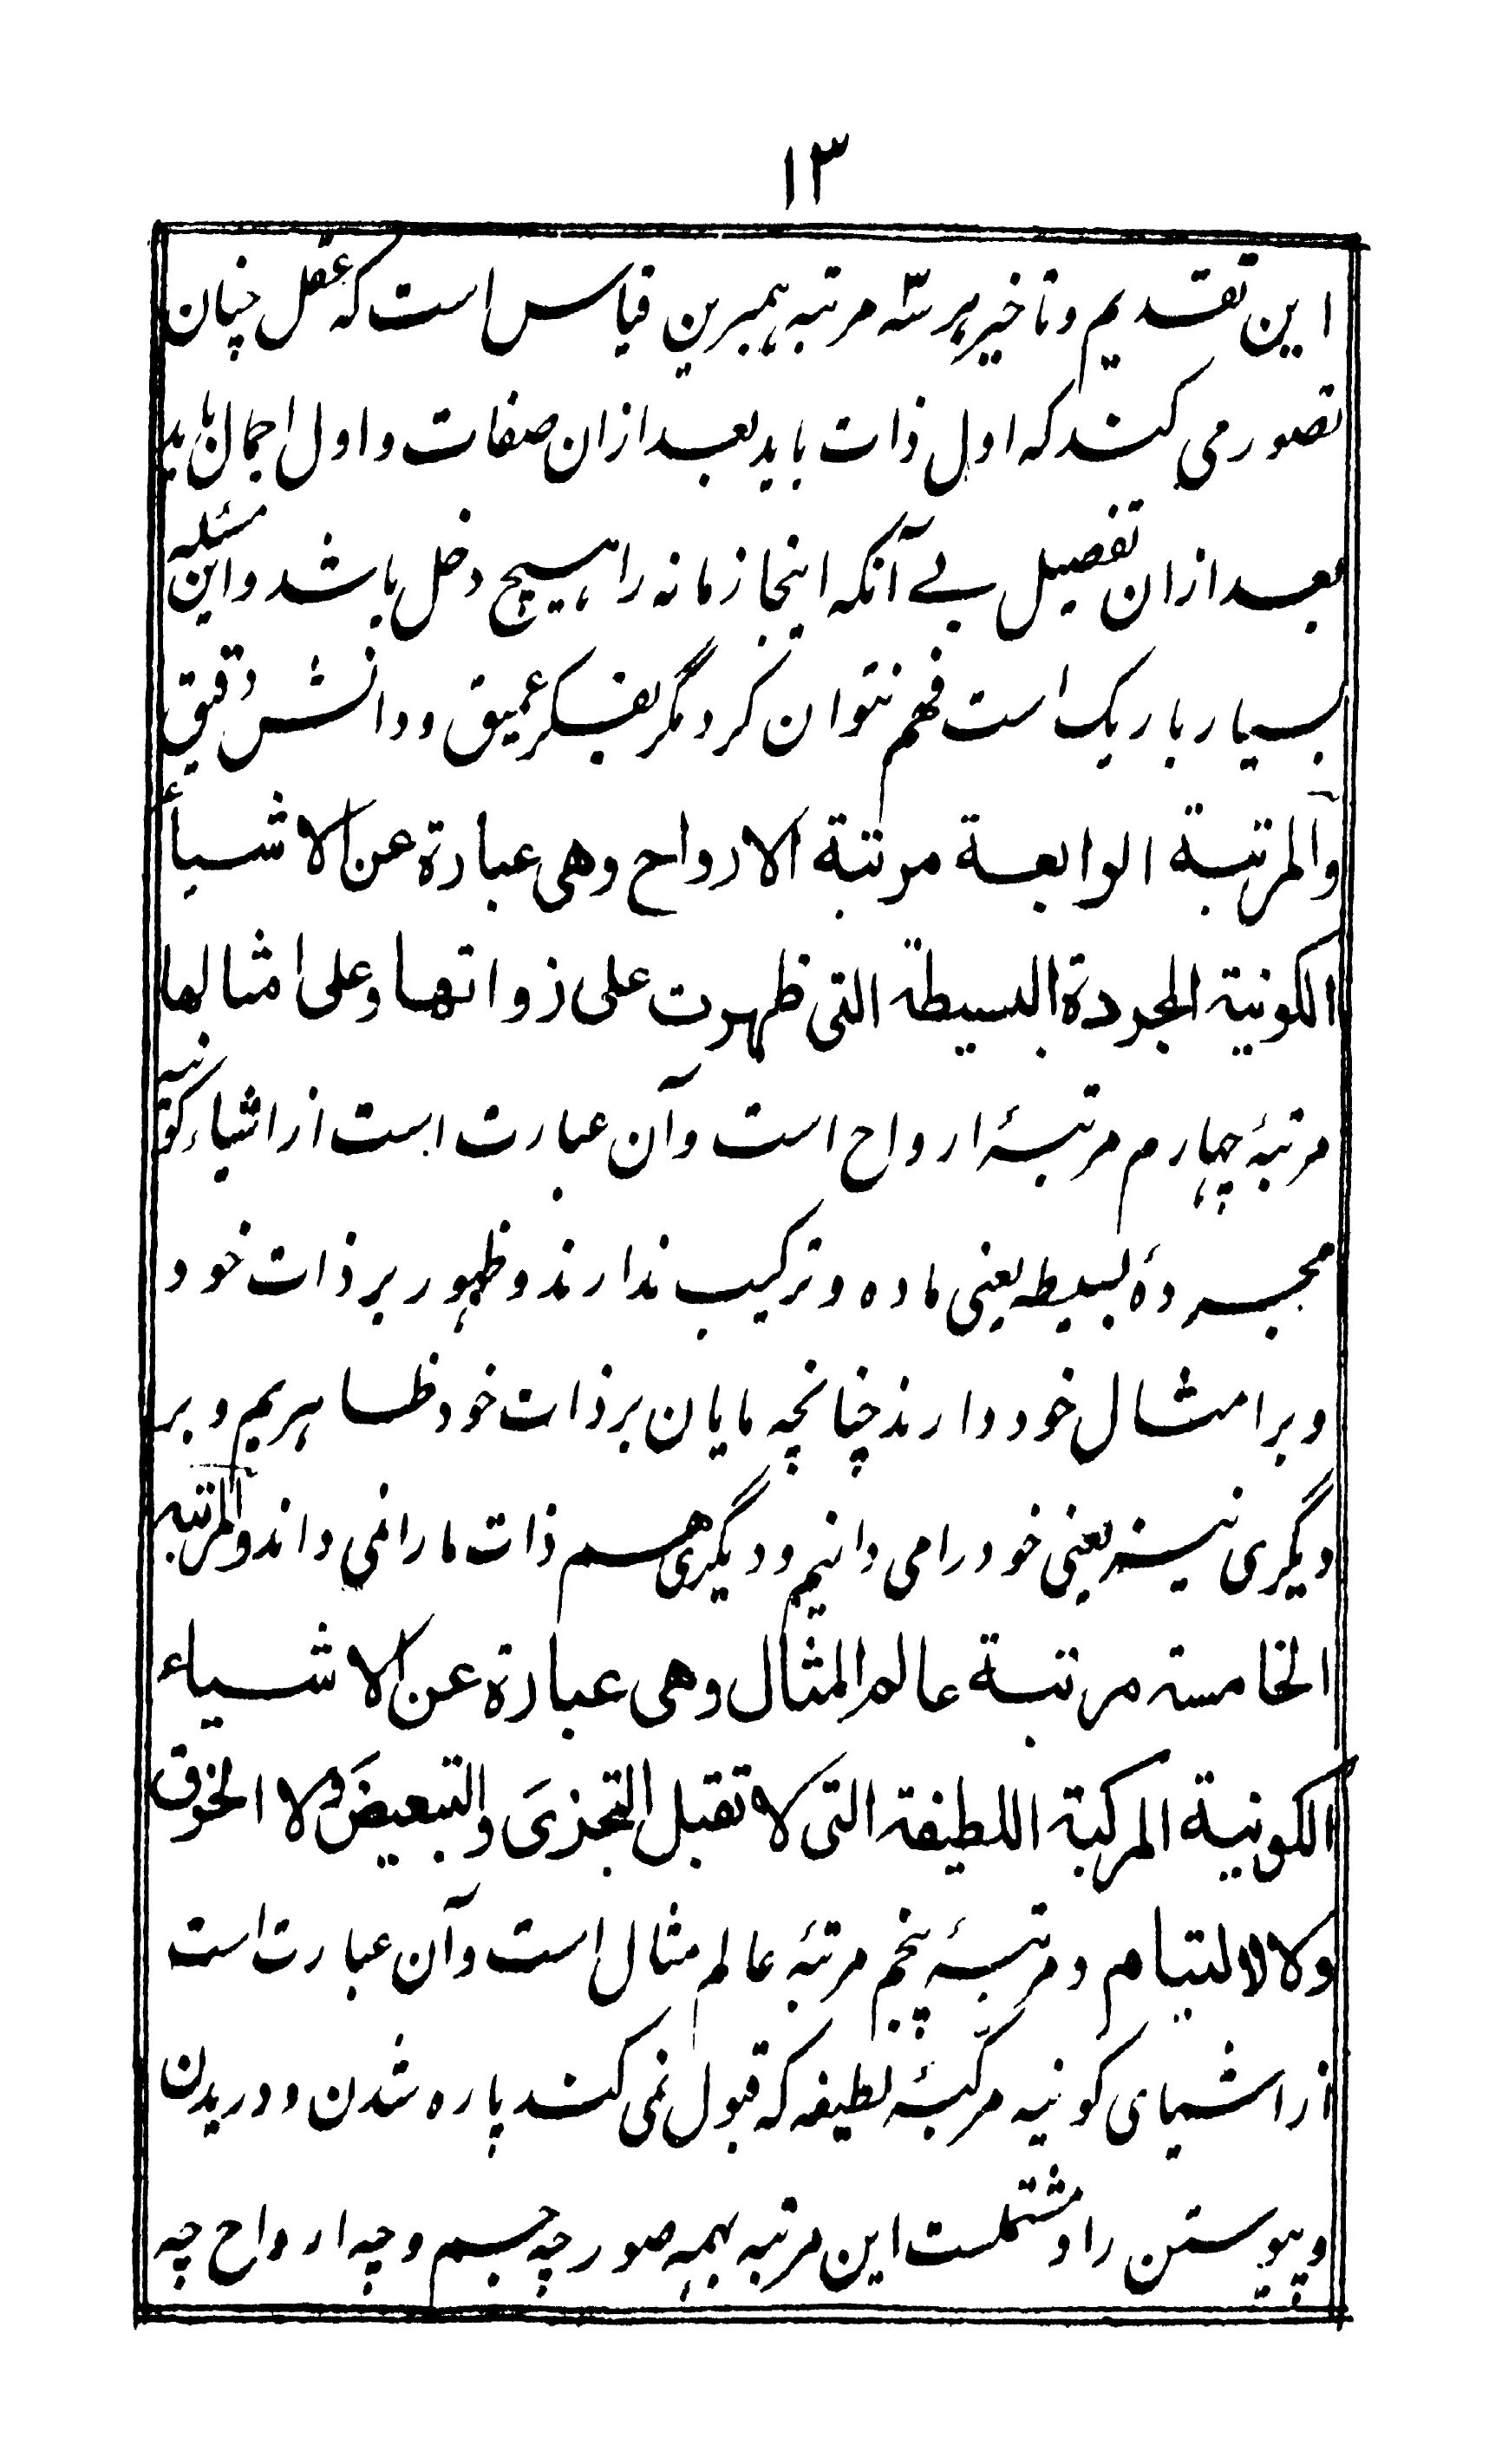 ۱۳
این تقدیم و تاخیر هر سّه مرتبه همبرین قیاس است که عقل چنان
تصور می کند که اول ذات باید بعد ازان صفات و اول اجمال باید
بعد ازان تفصیل بے آنکه اینجا زمانه را هیچ دخل باشد و این مسئله
بسیار باریک است فهم نتوان کرد مگر بفکر عمیق و دانش دقیق
والمرتبة الرابعة مرتبة الارواح وهی عبارة عن الاشیأ
الکونیة المجردة البسیطة التی ظهرت علی ذواتها و علی امثالها
مرتبهٔ چهارم مرتبهٔ ارواح است و آن عبارت است از اشیاء کونیه
مجردهٔ بسیطه یعنی ماده و ترکیب ندارند و ظهور بر ذات خود
و بر امثال خود دارند چنانچه مایان بر ذات خود ظاهریم و بر
دیگری نیز یعنی خود را می دانیم و دیگری هم ذات ما را می داند والمرتبه
الخامسة مرتبة عالم المثال وهی عبارة عن الاشیاء
الکونیة المرکبة اللطیفة التی لا تقبل التجزیَ والتبعیضَ ولا الخرق
ولا الالتیام و مرتبهٔ پنجم مرتبهٔ عالم مثال است و آن عبارت است
از اشیای کونیه مرکّبهٔ لطیفه که قبول نمی کند پاره شدن و دریدن
و پیوستن را و مشتملست این مرتبه بهمه صور چه جسم و چه ارواح چه